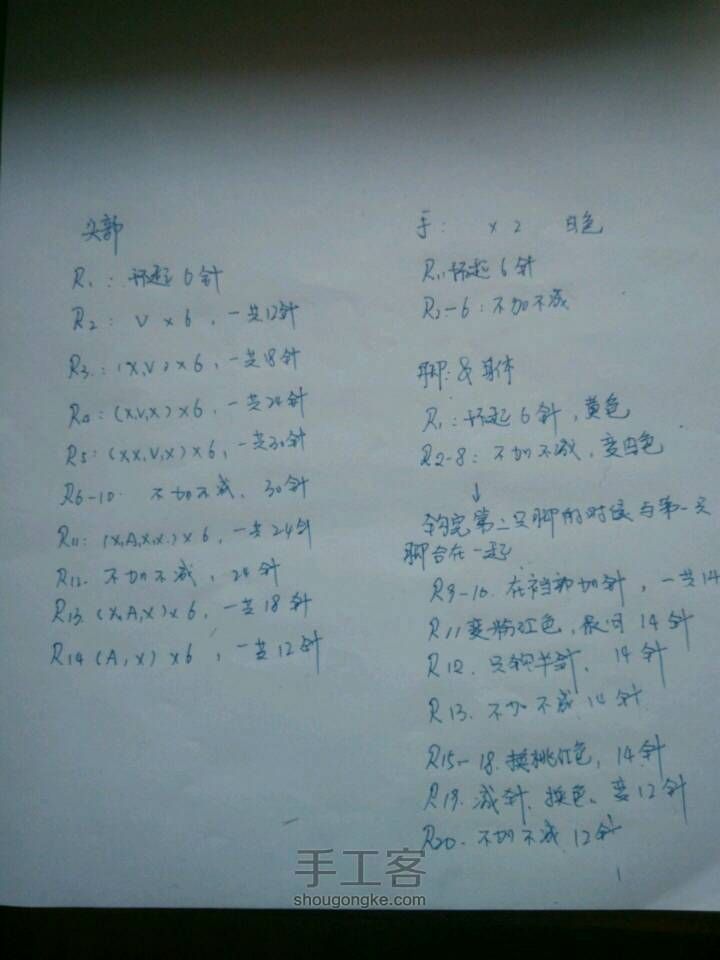 头部
R1: 环起6针
R2: V×6, 一共12针
R3: (X,V)×6, 一共18针
R4: (X,V,X)×6, 一共24针
R5: (X,X,V,X)×6, 一共30针
R6-10 不加不减, 30针
R11: (X,A,X,X)×6, 一共24针
R12. 不加不减, 24针
R13. (X,A,X)×6, 一共18针
R14 (A,X)×6, 一共12针
手: ×2 白色
R1: 环起6针
R2-6: 不加不减
脚: & 身体
R1: 环起6针, 黄色
R2-8: 不加不减, 变白色
↓
钩完第二只脚的时候与第一只
脚合在一起
R9-10. 在裆部加针, 一共14
R11 变粉红色, 14针
R12. 只钩半针, 14针
R13. 不加不减 14针
R15-18. 换桃红色, 14针
R19. 减针、换色、变12针
R20. 不加不减 12针
1
手工客
shougongke.com